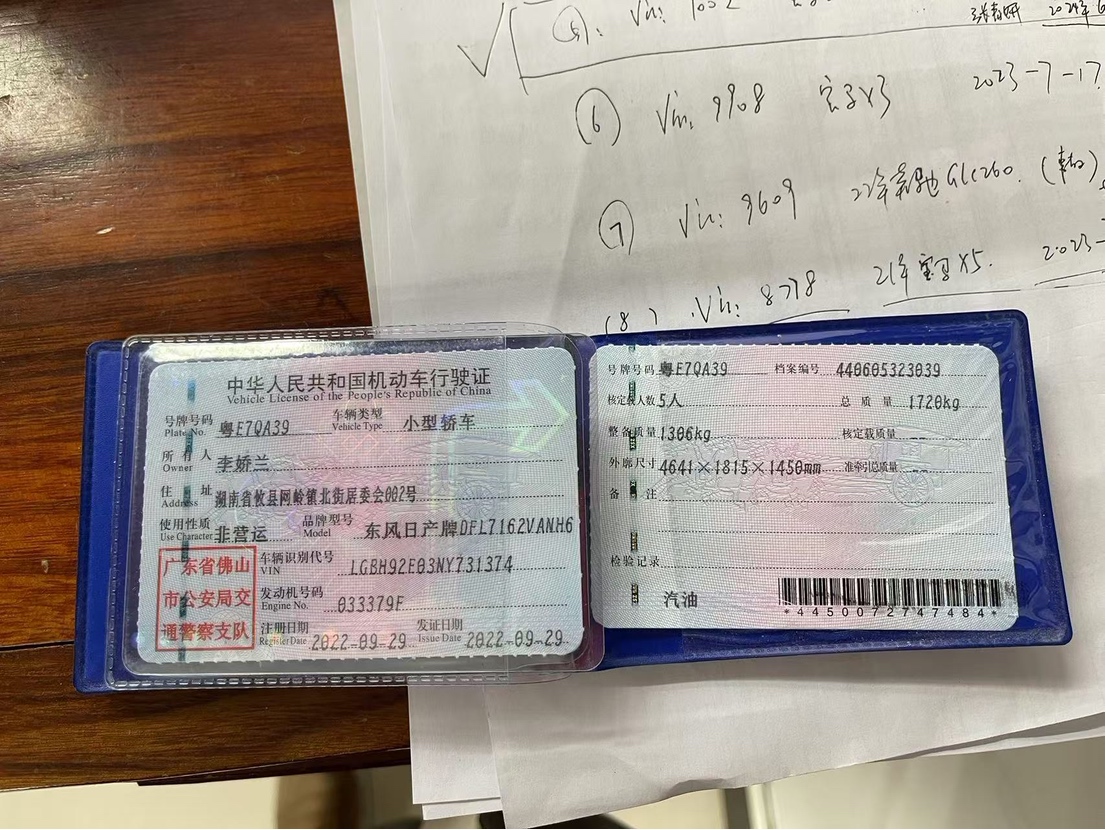 (5). Vin: 1002
张春妍 2024年6
⑥ Vin: 9908 宝马X3 2023-7-17.
⑦ Vin: 9609 22年奔驰GLC260.
(8) Vin: 8778 21年宝马X5. 2023-
中华人民共和国机动车行驶证
Vehicle License of the People's Republic of China
号牌号码 粤E7QA39 车辆类型 小型轿车
Plate No. Vehicle Type
所有人 李娇兰
Owner
住址 湖南省攸县网岭镇北街居委会002号
Address
使用性质 非营运 品牌型号 东风日产牌DFL7162VANH6
Use Character Model
广东省佛山
市公安局交
通警察支队
车辆识别代号 LGBH92E03NY731374
VIN
发动机号码 033379F
Engine No.
注册日期 2022-09-29 发证日期 2022-09-29
Register Date Issue Date
号牌号码 粤E7QA39 档案编号 440605323039
核定载人数 5人 总质量 1720kg
整备质量 1306kg 核定载质量 --
外廓尺寸 4641×1815×1450mm 准牵引总质量 --
备注
检验记录
汽油
*4450072747484*